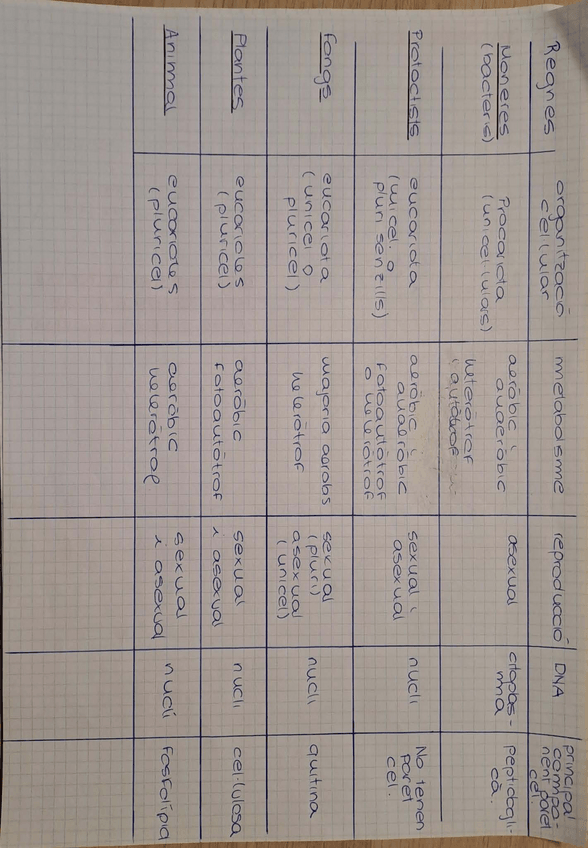 Regnes
organització
cel·lular
metabolisme
reproducció
DNA
principal
compo-
nent paret
cel.
Moneres
(bacteris)
Procariota
(unicel·lulars)
aeròbic i
anaeròbic
heteròtrof
i autòtrof
asexual
citoplas-
ma
peptidogli-
cà.
Protoctists
eucariota
(unicel. o
pluri senzills)
aeròbic i
anaeròbic
fotoautòtrof
o heteròtrof
sexual i
asexual
nucli
No tenen
paret
cel.
Fongs
eucariota
(unicel o
pluricel)
majoria aerobs
heteròtrof
sexual
(pluri)
asexual
(unicel)
nucli
quitina
Plantes
eucariotes
(pluricel)
aeròbic
fotoautòtrof
sexual
i asexual
nucli
cel·lulosa
Animal
eucariotes
(pluricel)
aeròbic
heteròtrof
sexual
i asexual
nucli
fosfolípia